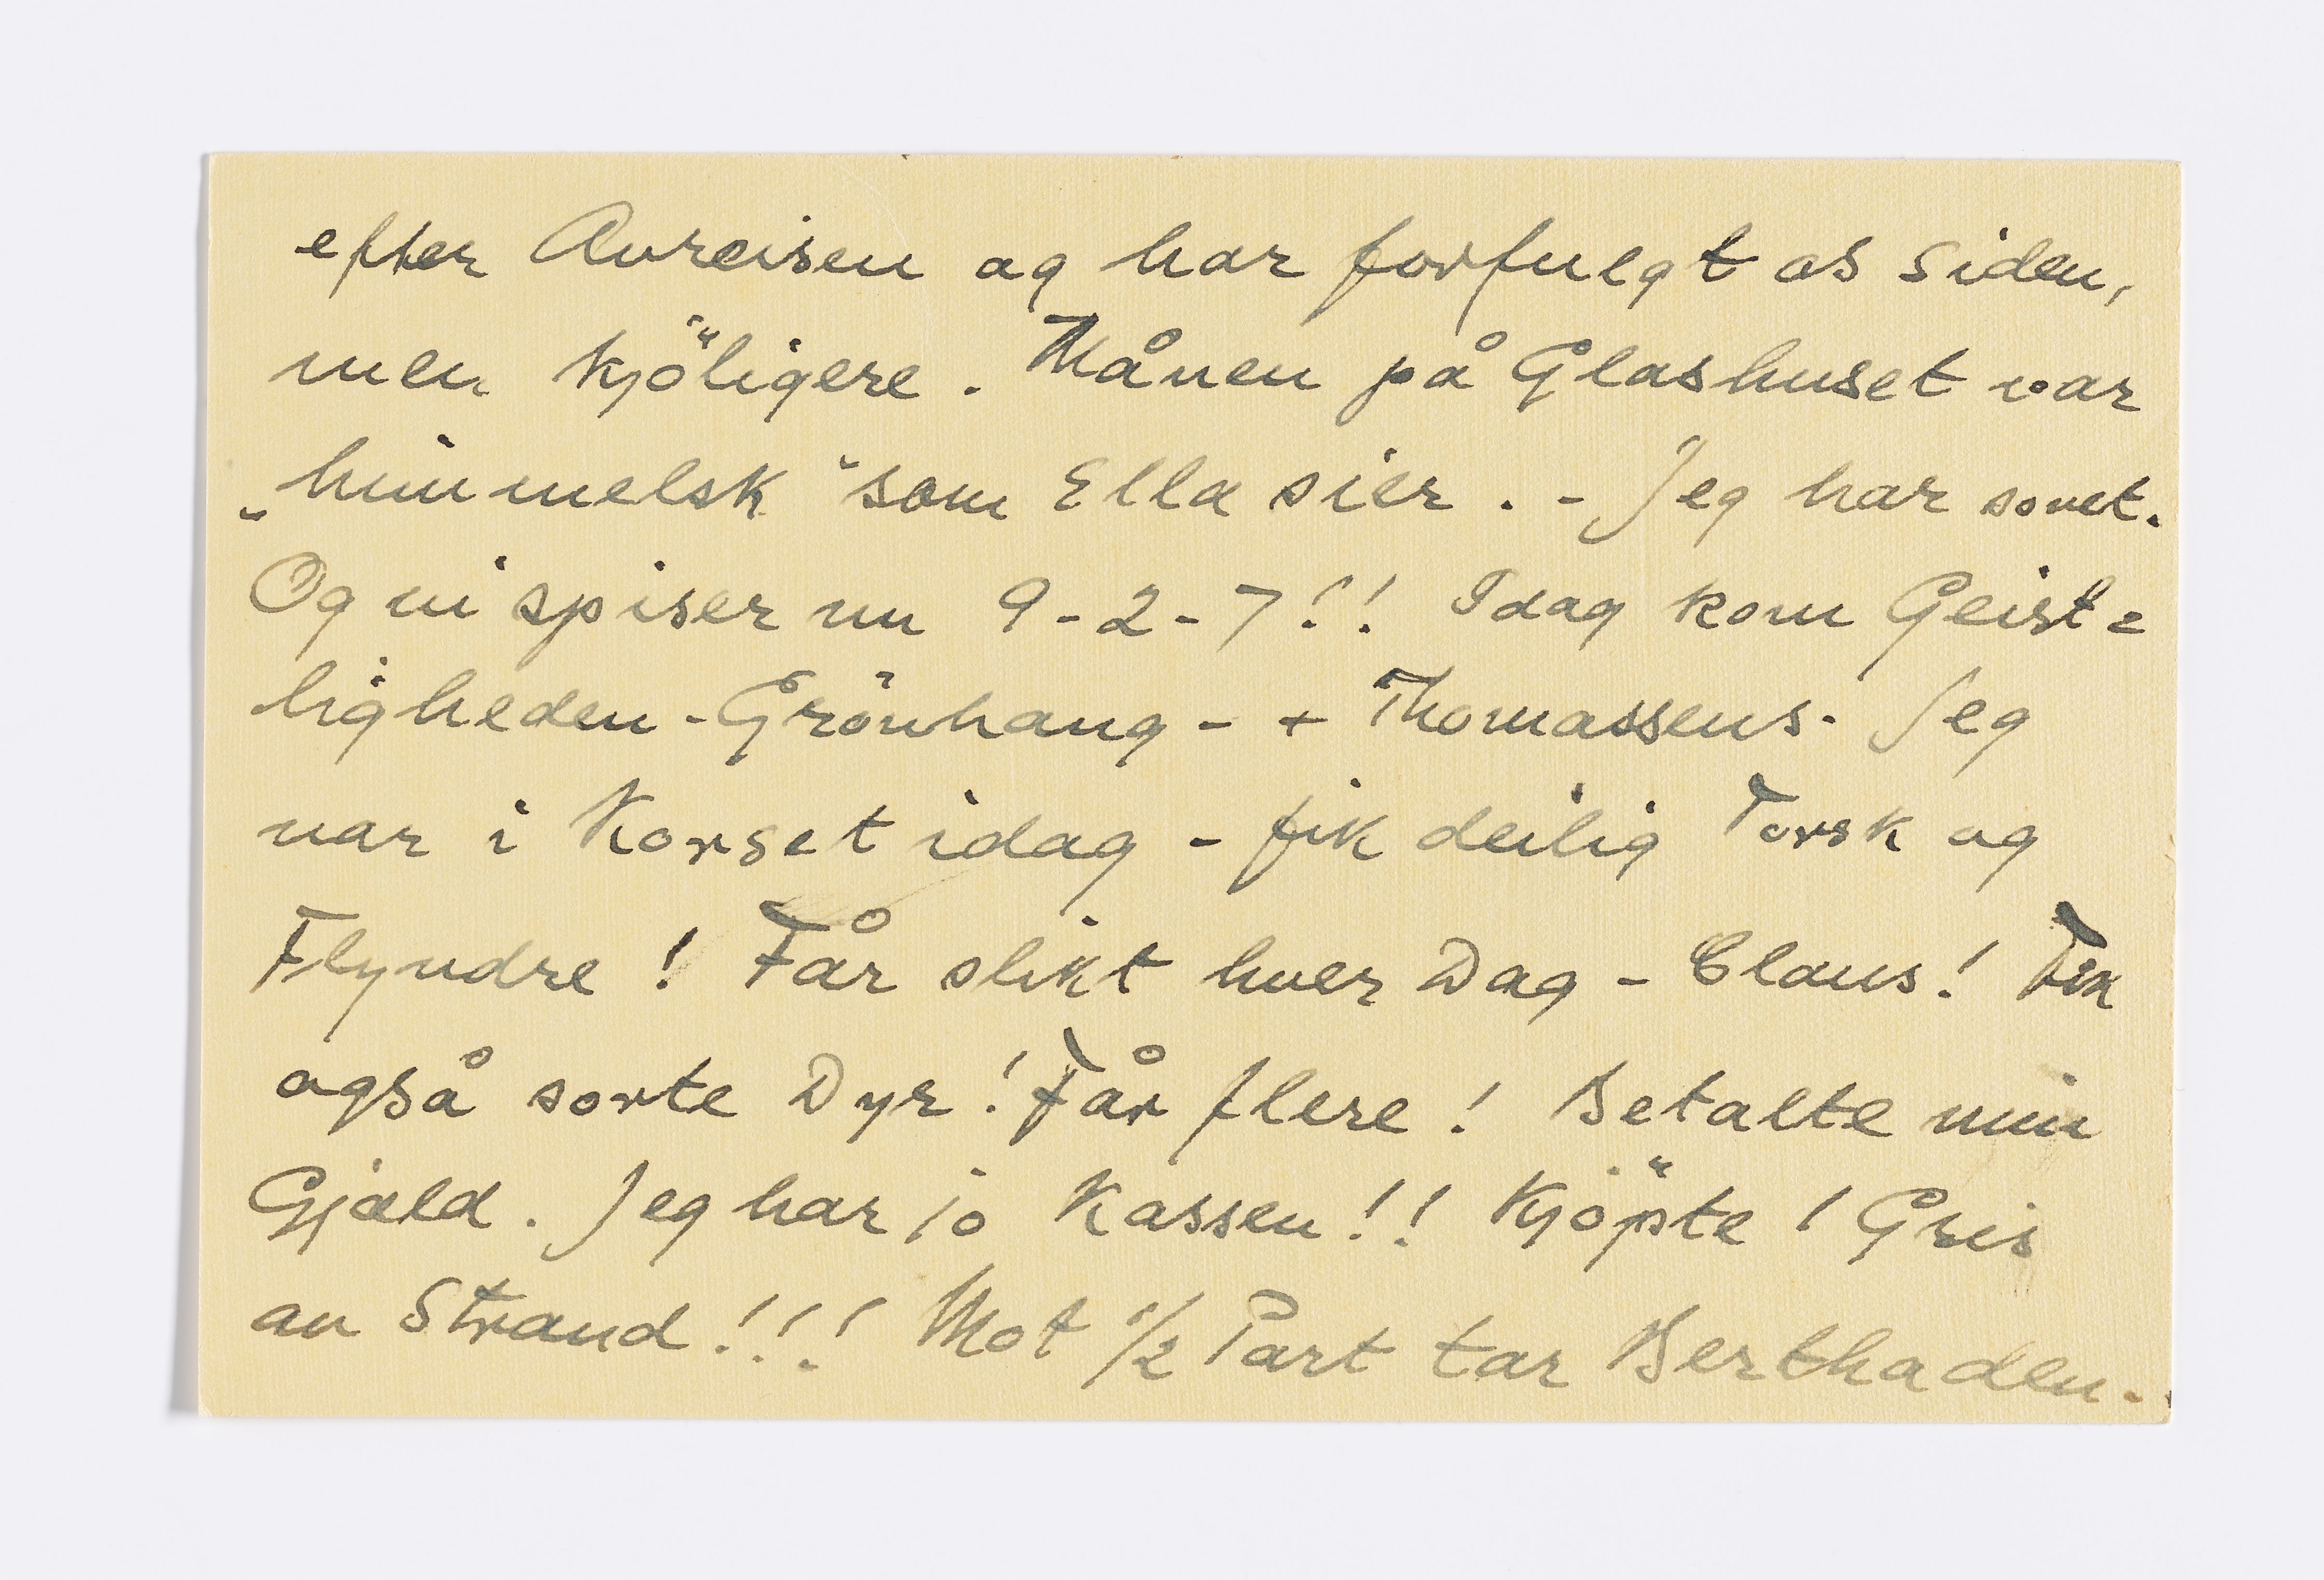 efter Avreisen og har forfulgt os siden,
men kjöligere. Månen på Glashuset var
„himmelsk“ som Ella sier. - Jeg har sovet.
Og vi spiser nu 9-2-7!! Idag kom Geist=
ligheden - Grönhaug - + Thomassens. Jeg
var i Korset idag - fik deilig Torsk og
Flyndre! Får slikt hver Dag - Claus! Fik
også sorte Dyr! Får flere! Betalte min
Gjæld. Jeg har jo Kassen!! Kjöpte 1 Gris
av Strand!!! Mot 1/2 Part tar Bertha den.